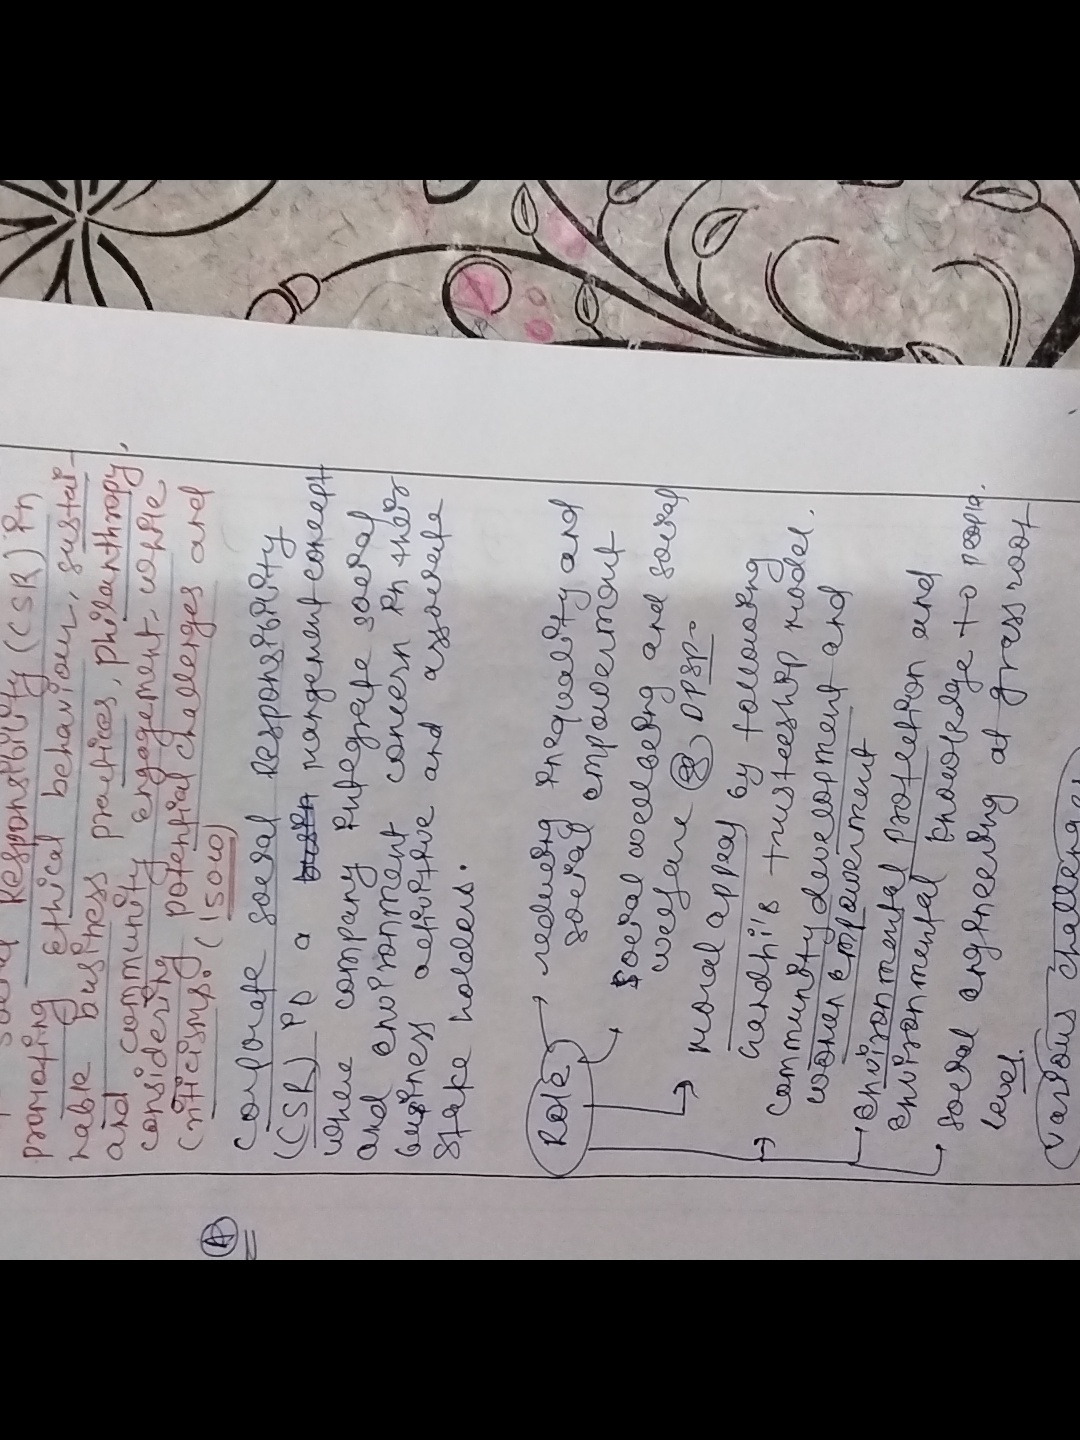 social Responsibility (CSR) in
promoting ethical behaviour, sustai-
nable business practices, philanthropy,
and community engagement while
considering potential challenges and
criticisms. (150w)
(A)
Corporate social Responsibility
(CSR) is a mangement concept
where company integrate social
and environment concern in their
business activitive and associate
stake holders.
Role
reducing inequality and
social empowerment
Social wellbeing and social
welfare DPSP.
moral appeal by following
Gandhi's trusteeship model.
community development and
women empowerment
environmental protection and
environmental knowledge to people.
social engineering at grass root
level.
various challenges